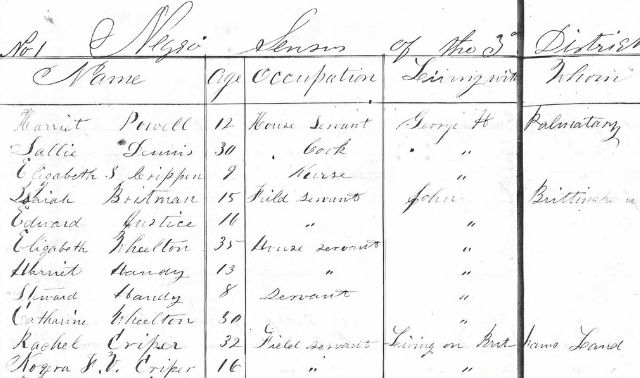 No 1 Negro Sensus of the 3d District
Name Age Occupation Living with Whom
Harriet Powell 12 House Servant George H Palmatary
Sallie Dennis 30 Cook "
Elizabeth S Crippen 9 Nurse "
Isaiah Britman 15 Field servant John Brittingham
Edward Justice 16 " "
Elizabeth Wheelton 35 House servant "
Harriet Handy 13 " "
Steward Handy 8 servant "
Catharine Wheelton 30 "
Rachel Criper 32 Field servant Living on Brit hams Land
F. Criper 16 " "